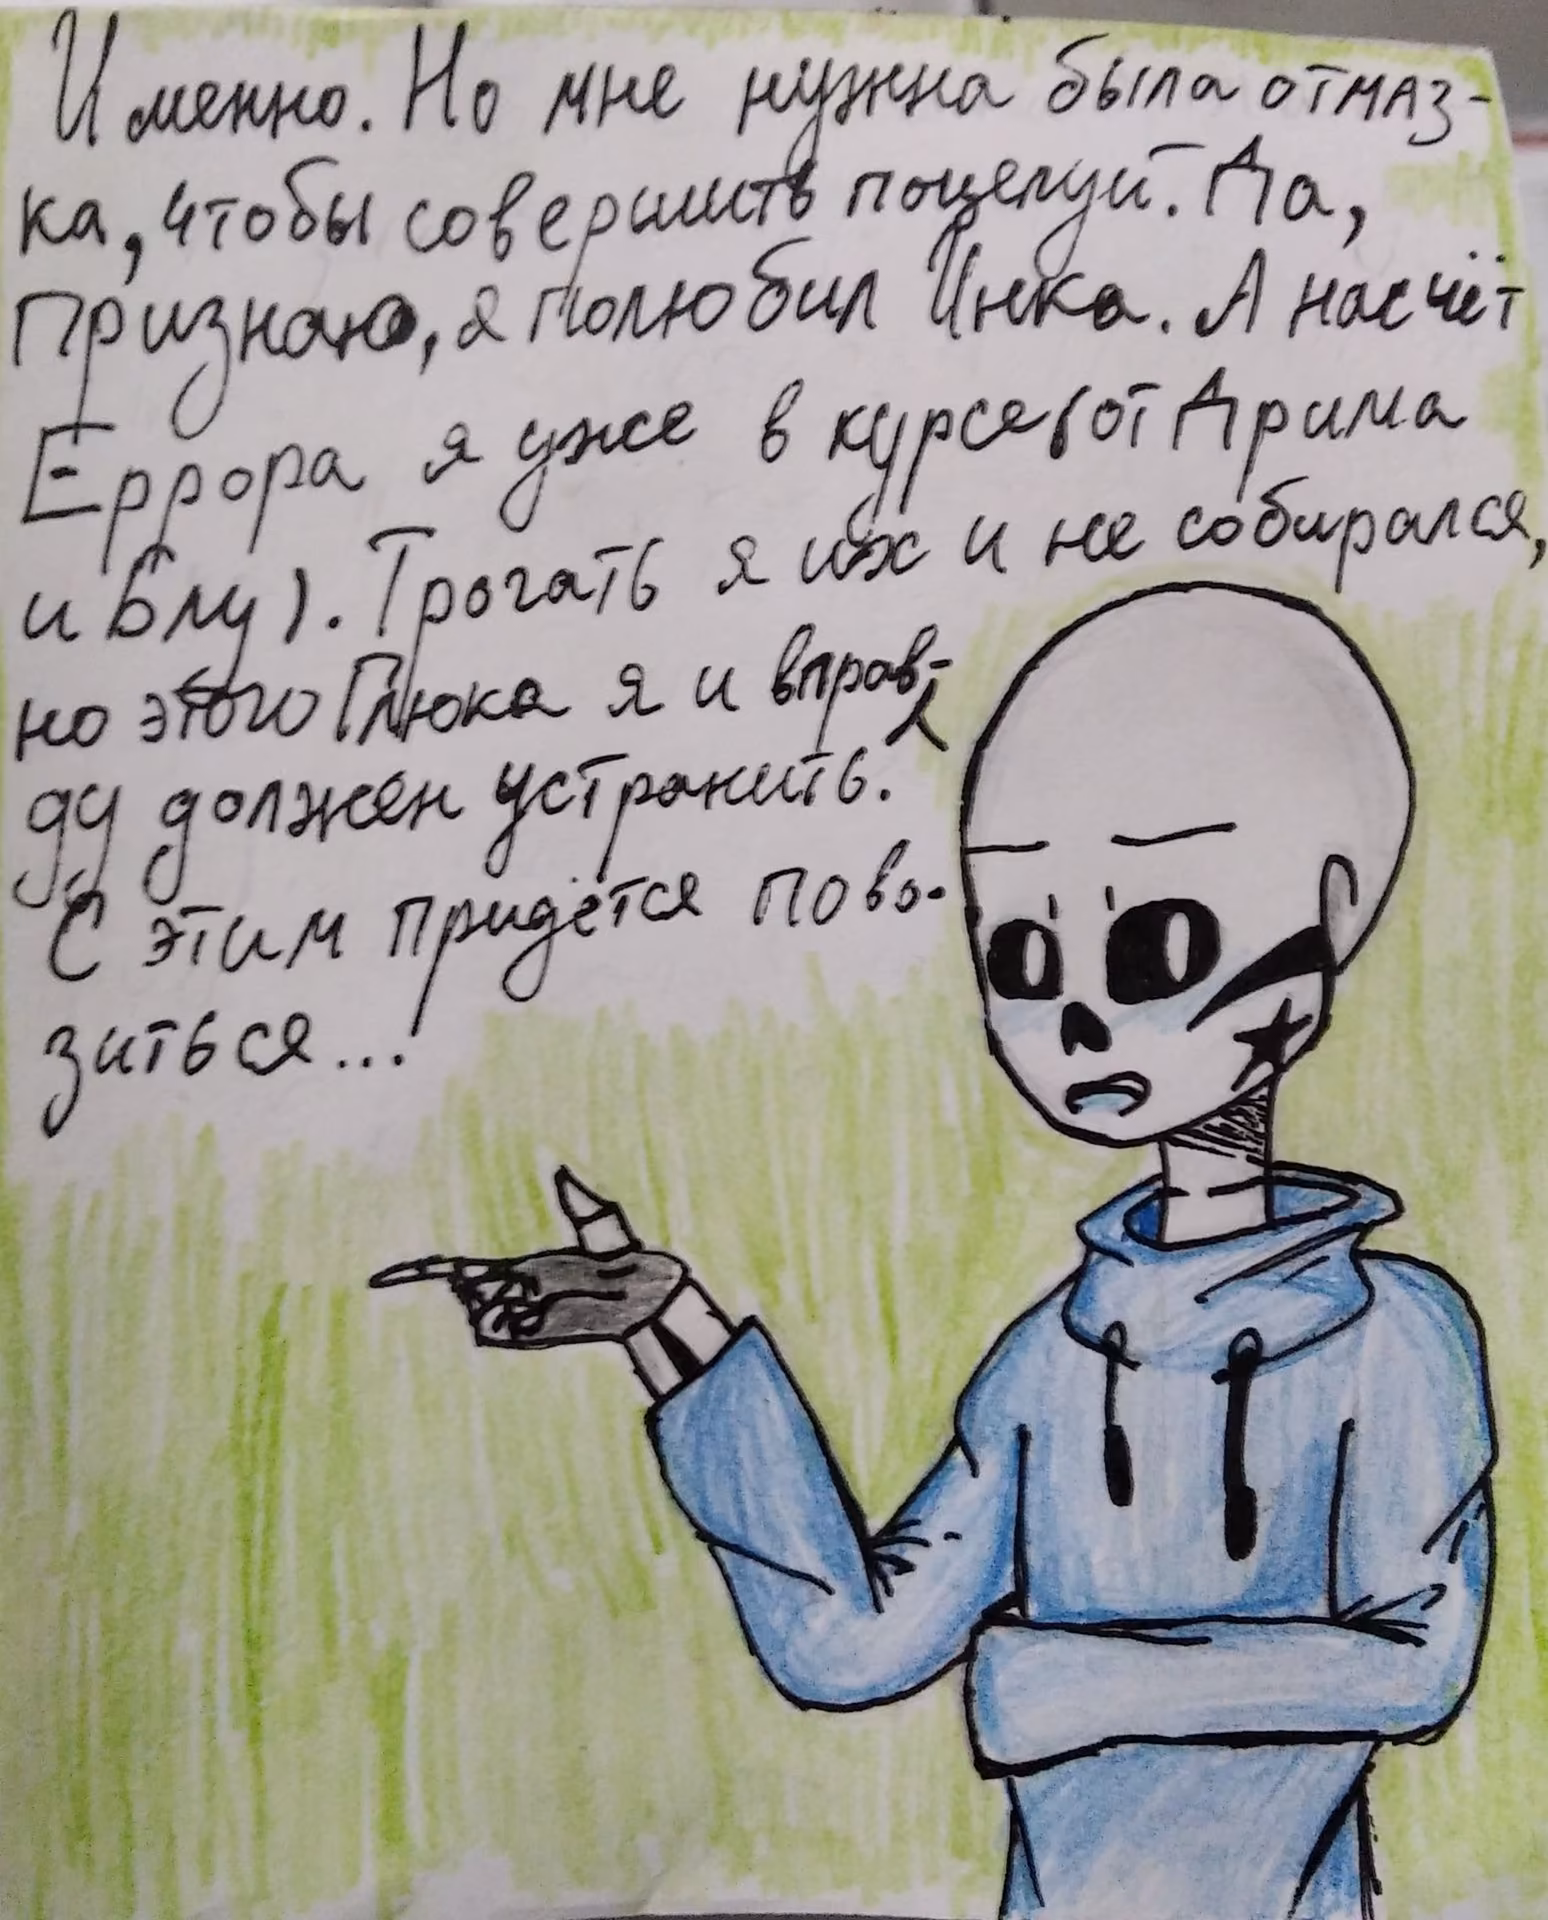 Именно. Но мне нужна была отмаз-
ка, чтобы совершить поцелуй. Да,
признаю, я полюбил Инка. А насчёт
Еррора я уже в курсе (от Дрима
и Блу). Трогать я их и не собирался,
но этого Глюка я и вправ-
ду должен устранить.
С этим придётся пово-
зиться...